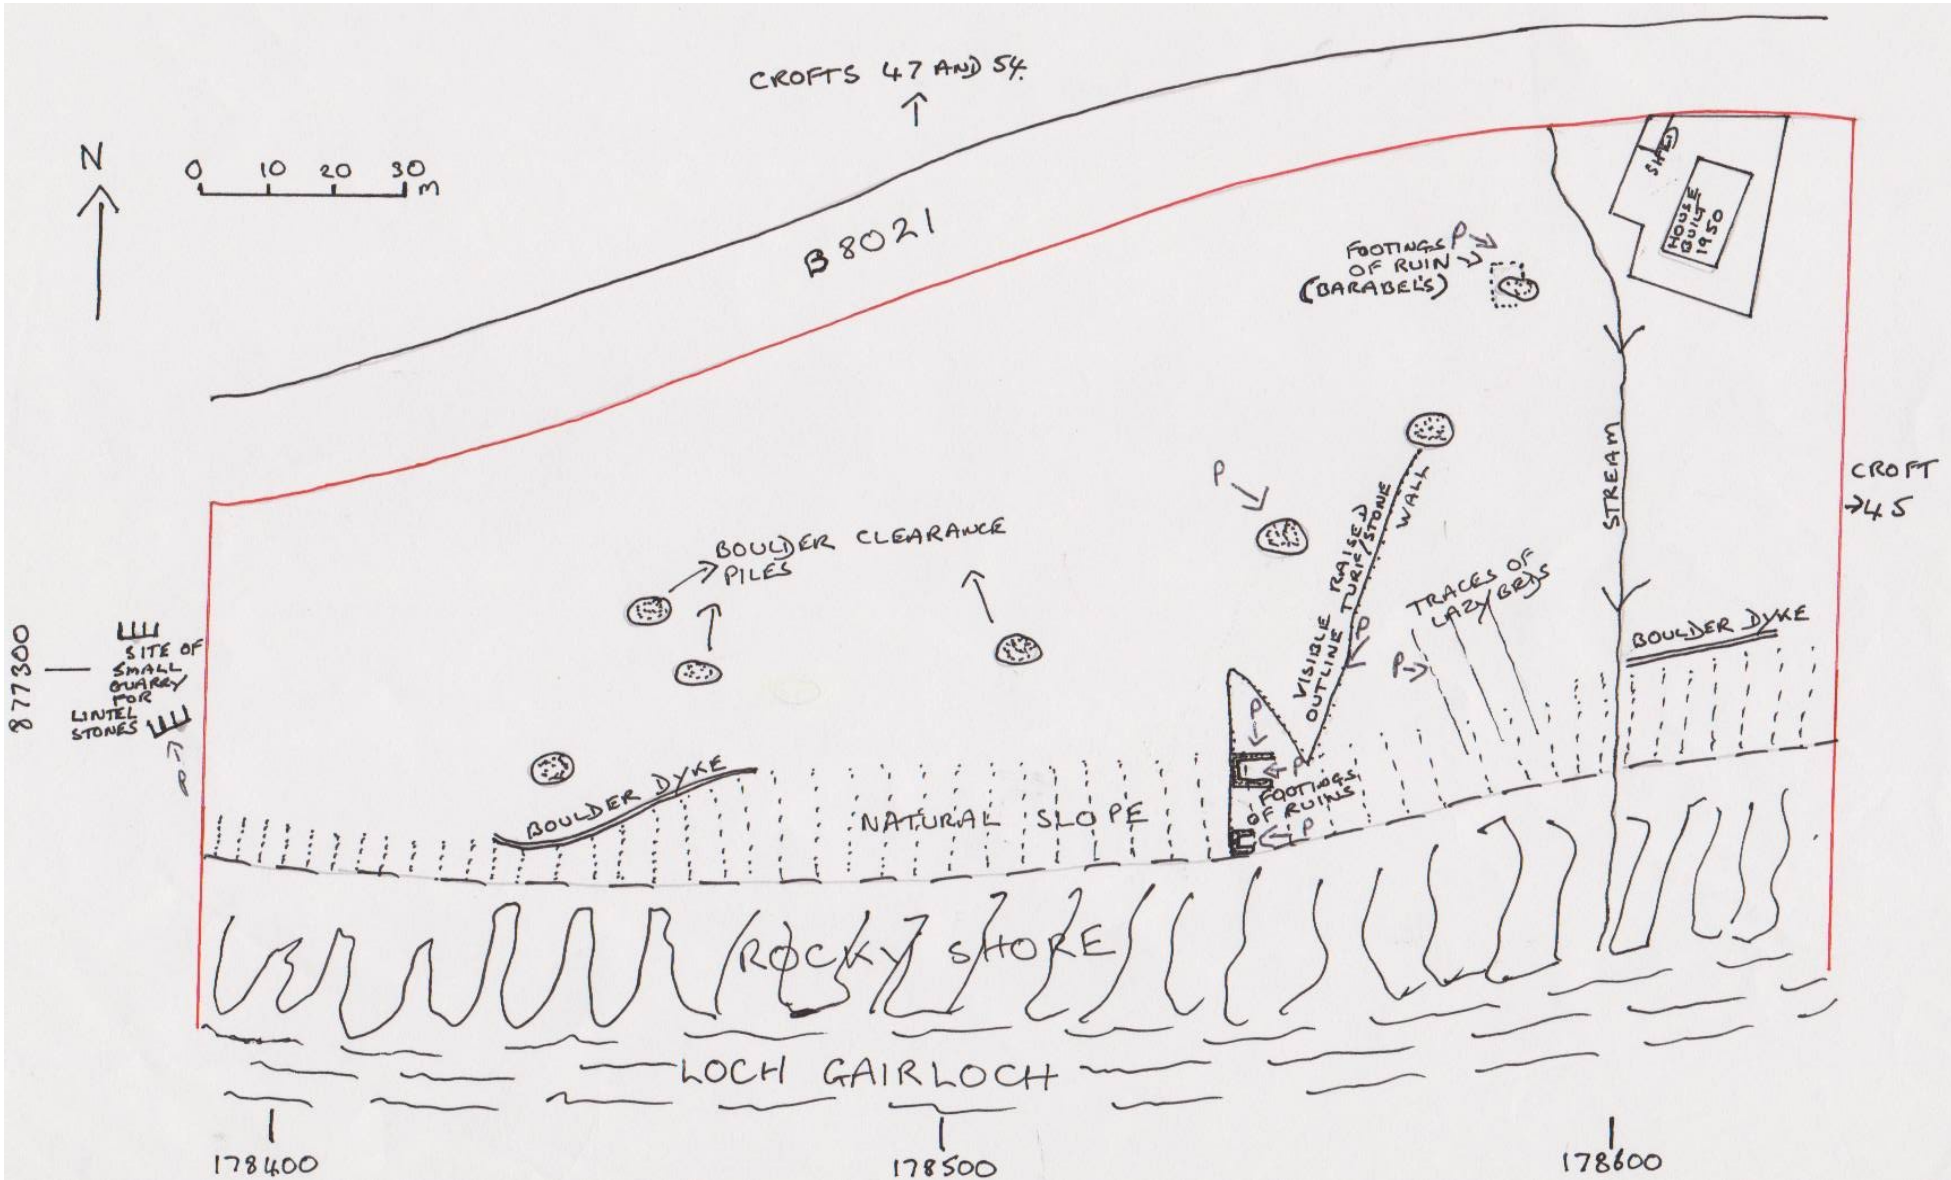 CROFTS 47 AND 54.
N
0 10 20 30
m
B8021
SHED
HOUSE
BUILT
1950
FOOTINGS P
OF RUIN
(BARABEL'S)
CROFT
45
STREAM
P
VISIBLE RAISED
OUTLINE TURF/STONE
WALL
P
BOULDER CLEARANCE
PILES
TRACES OF
LAZYBEDS
P
BOULDER DYKE
877300
SITE OF
SMALL
QUARRY
FOR
LINTEL
STONES
P
P
P
FOOTINGS
OF RUINS
P
BOULDER DYKE
NATURAL SLOPE
ROCKY SHORE
LOCH GAIRLOCH
178400
178500
178600